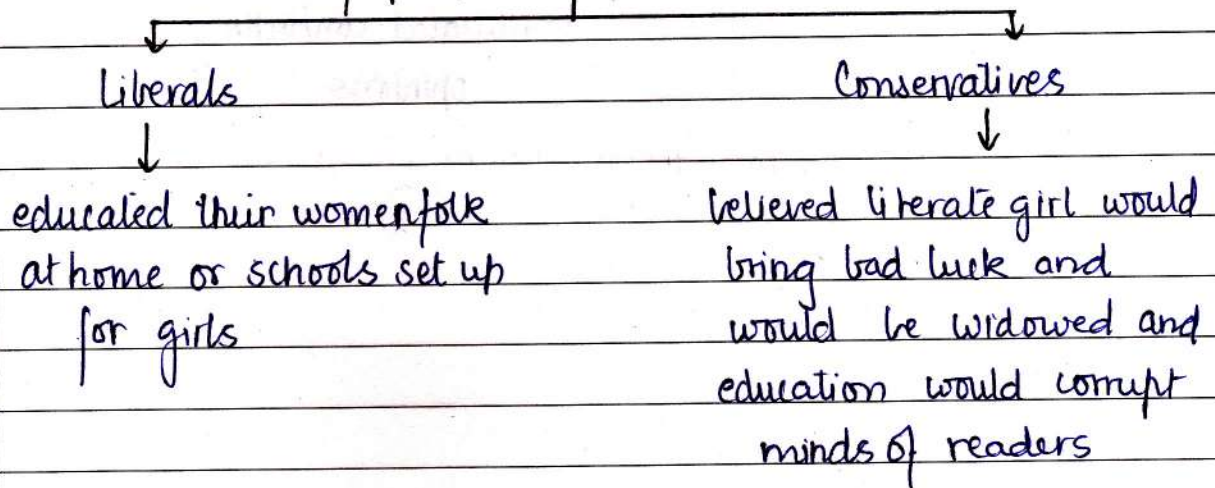 Liberals
Conservatives
educated their womenfolk
at home or schools set up
for girls
believed literate girl would
bring bad luck and
would be widowed and
education would corrupt
minds of readers